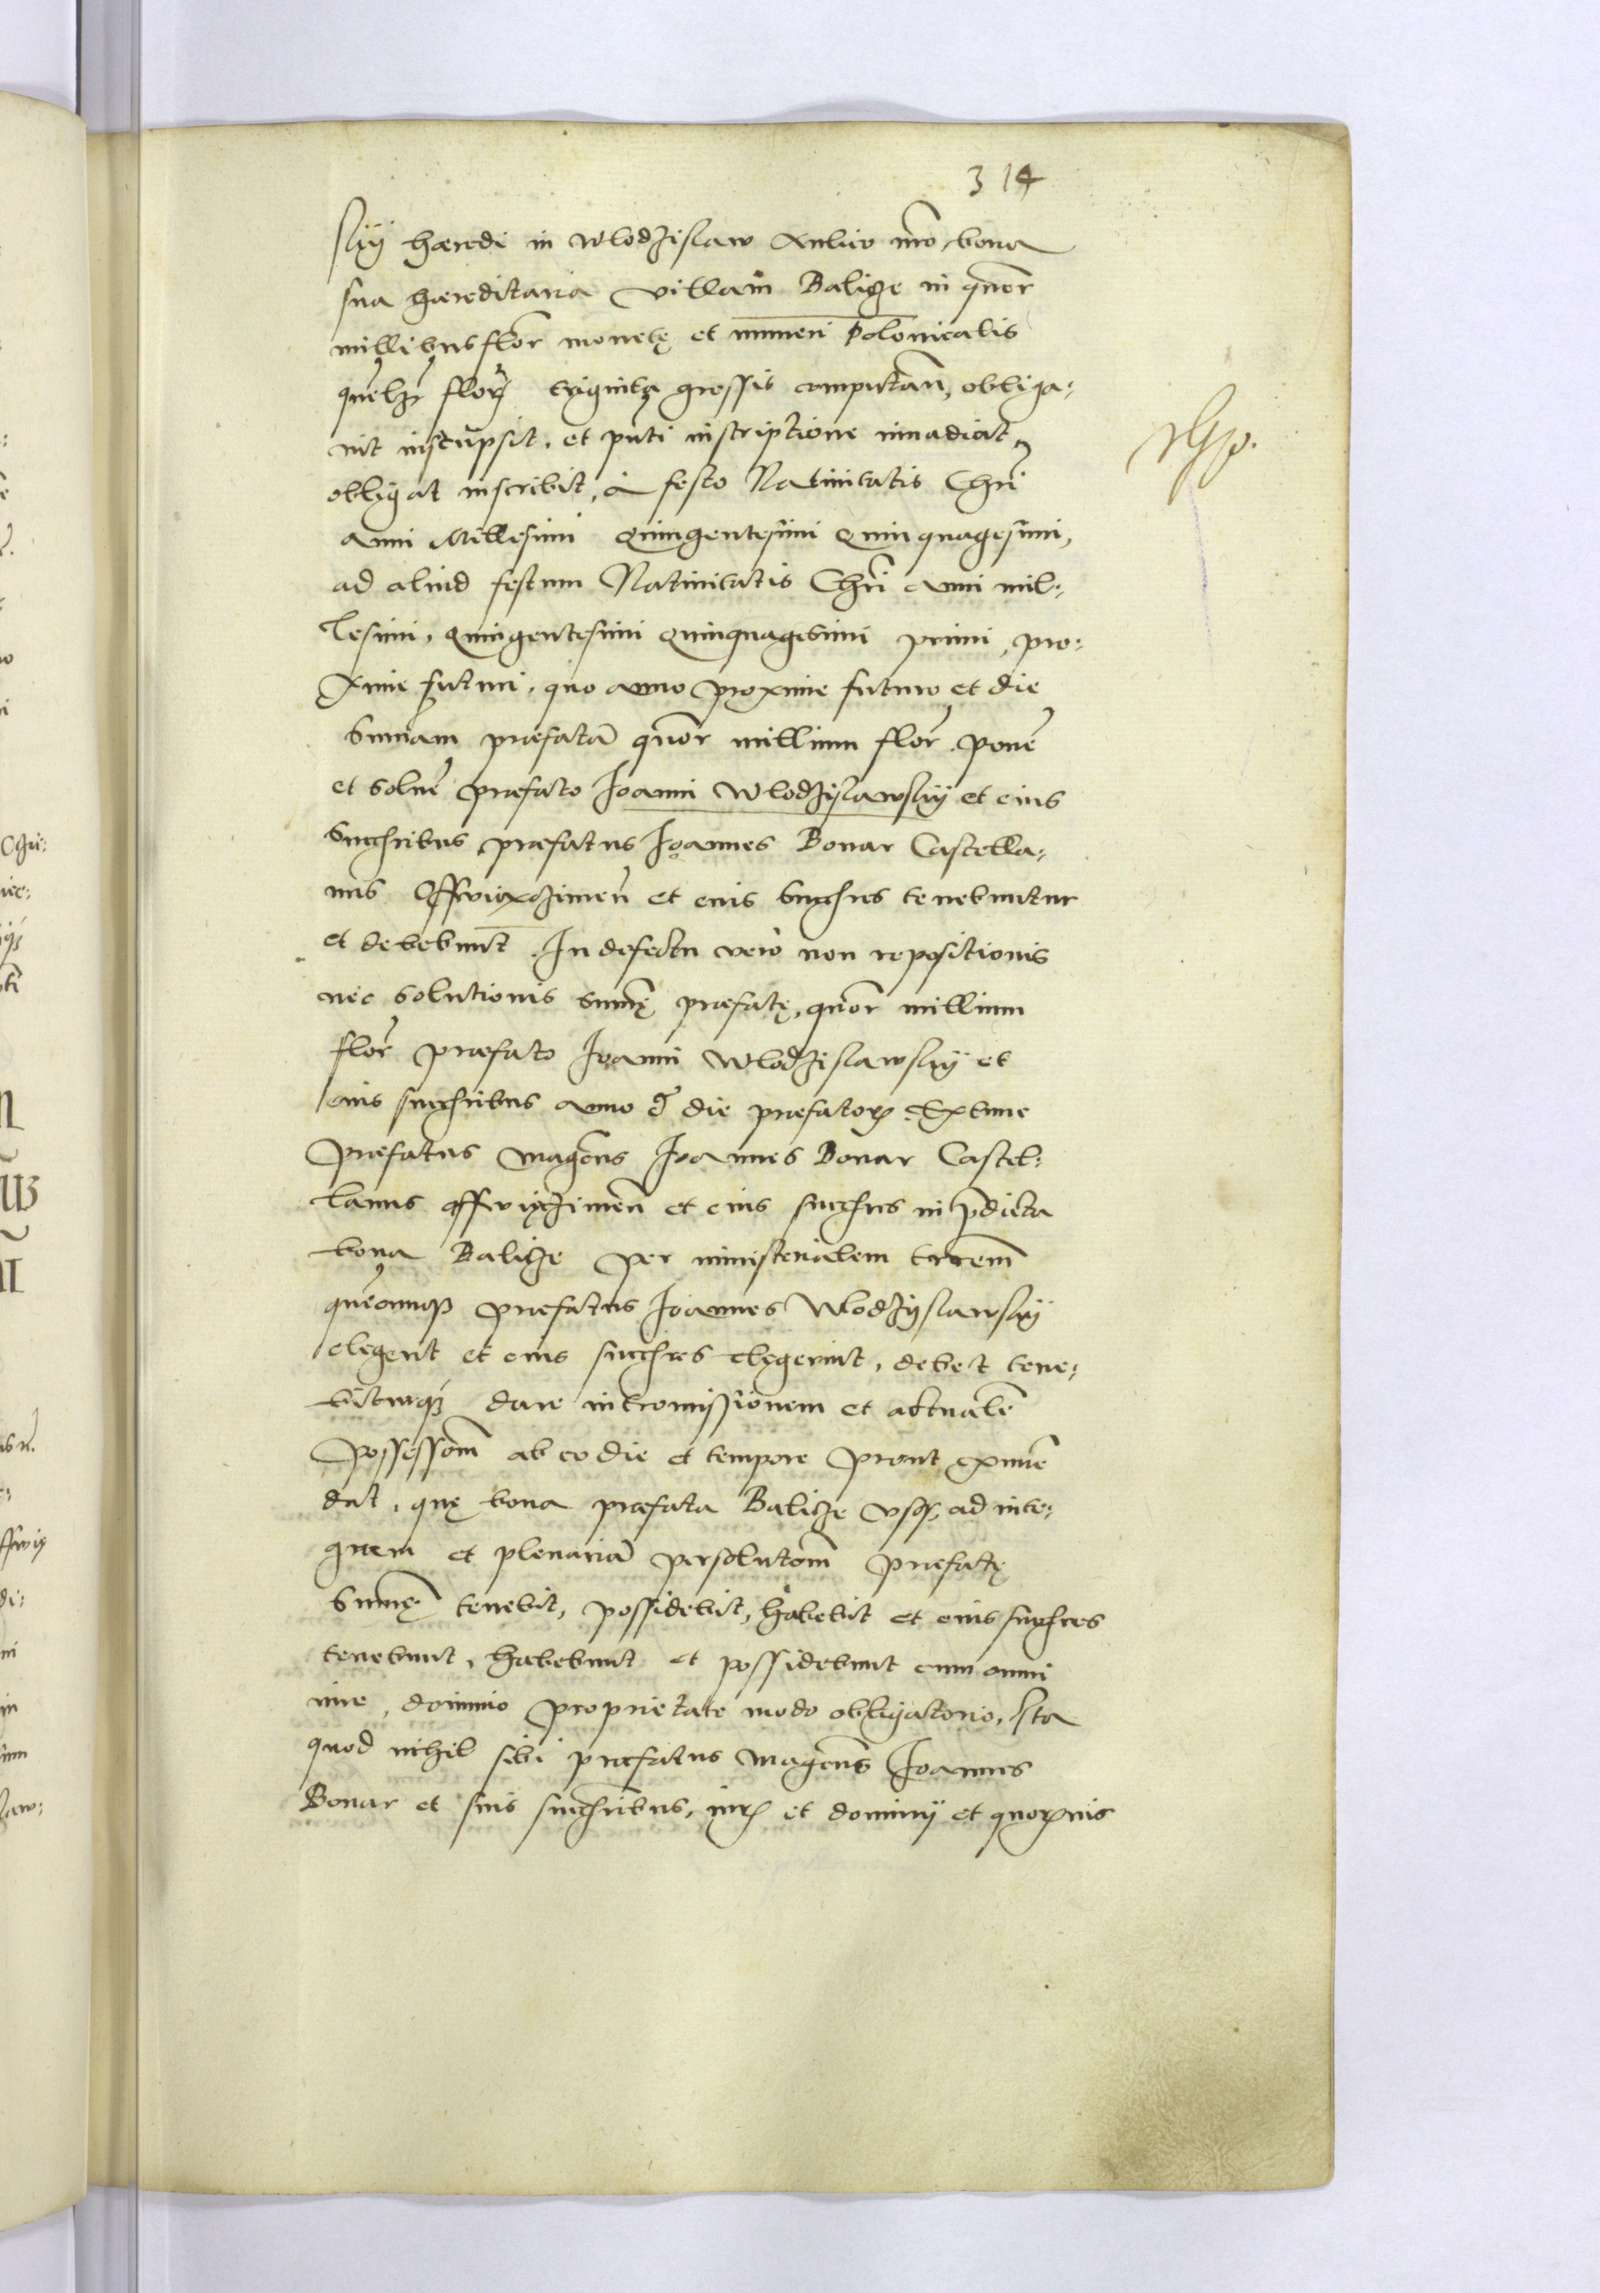 314
sky hæredi in Wlodzislaw Aulico nro, bona
sua hæreditaria villam Balicze in quor
millibus flor monetę et numeri Polonicalis
quēlꝫ florꝫ triginta grossis computan, obliga:
uit inscripsit, et pnti inscriptione inuadiat,
obligat inscribit, à festo Natiuitatis Chri
anni Millesimi Quingentesimi Quinquagesimi,
ad aliud festum Natiuitatis Chri anni mil:
lesimi, Quingentesimi Quinquagesimi primi, pro:
xime futuri, quo anno proxime futuro et die
summam præfatā quor millium flor. ponē
et soluē præfato Joanni Wlodzyslawsky et eius
succribus præfatus Joannes Bonar Castella:
nus Osswiæczimen et eius succres tenebuntur
et debebunt. In defectu verò non repositionis
nec solutionis summę præfatę, quor millium
flor præfato Joanni Wlodzislawsky et
eius succribus anno et die præfatoꝝ. Extunc
præfatus Magcus Joannes Bonar Castel:
lanus Osswiæczimen et eius succres in pdicta
bona Balicze per ministerialem trrem
quēcunqꝫ præfatus Joannes Wlodzyslawsky
elegerit et eius succres elegerint, debet tene:
biturqꝫ dare intromissionem et actualē
possessom ab eo die et tempore prout exnunc
dat, quę bona præfata Balicze vsqꝫ ad inte:
gram et plenariā persolutom præfatę
summę tenebit, possidebit, habebit et eius succres
tenebunt, habebunt et possidebunt cum omni
iure, dominio proprietate modo obligatorio, Ita
quod nihil sibi præfatus Magcus Joannes
Bonar et suis succribus, iuris et dominij et quoruis